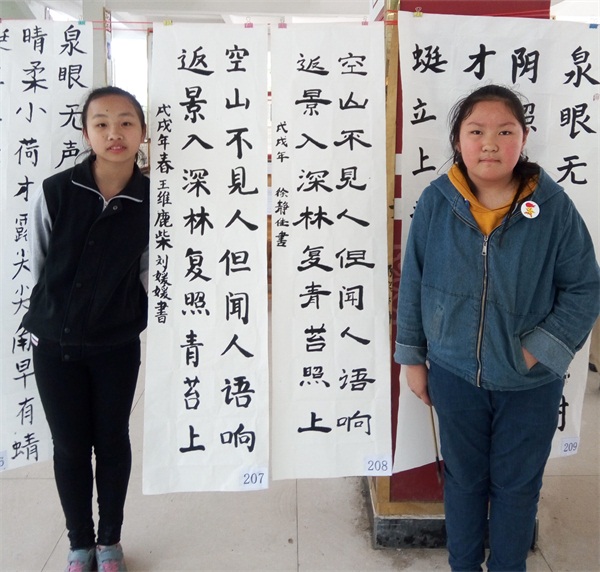 泉眼无声
晴柔小荷才露尖尖角早有蜻
蜓
空山不見人但闻人语响
返景入深林复照青苔上
戊戌年春王维鹿柴刘媛媛書
207
空山不見人但闻人语响
返景入深林复青苔照上
戊戌年 徐静 書
208
泉眼无
阴照
才
蜓立上
209